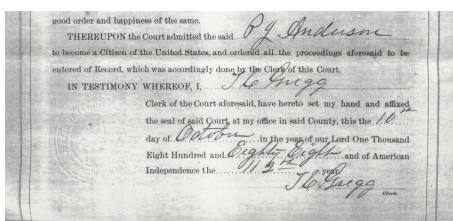 good order and happiness of the same.
THEREUPON the Court admitted the said P J Anderson
to become a Citizen of the United States, and ordered all the proceedings aforesaid to be
entered of Record, which was accordingly done by the Clerk of this Court.
IN TESTIMONY WHEREOF, I, J C Gregg
Clerk of the Court aforesaid, have hereto set my hand and affixed
the seal of said Court, at my office in said County, this the 10th
day of October in the year of our Lord One Thousand
Eight Hundred and Eighty Eight and of American
Independence the 113th year
J C Gregg
Clerk.